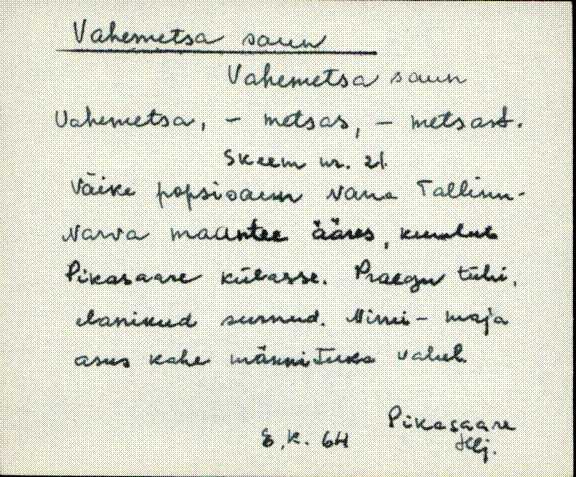 Vahemetsa saun
Vahemetsa saun
Vahemetsa, - metsas, - metsast.
Skeem nr. 21.
Väike popsisaun vana Tallinn-
Narva maantee ääres, kuulub
Pikasaare külasse. Praegu tühi,
elanikud surnud. Nimi - maja
asus kahe männituka vahel.
Pikasaare
E. K. 64 Hlj.